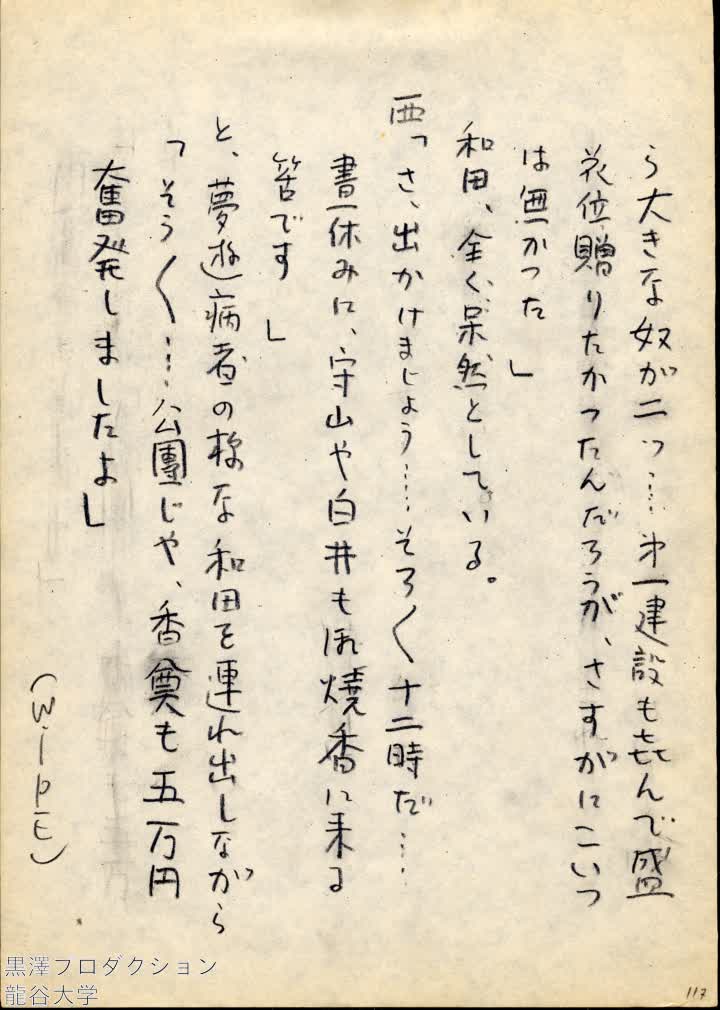 ら大きな奴が二つ……才一建設も㐂んで盛
花位贈りたかったんだろうが、さすがにこいつ
は無かった」
和田、全く、呆然としている。
西「さ、出かけましょう……そろ〱十二時だ……
晝休みに、守山や白井も 燒香に来る
筈です」
と、夢遊病者の様な和田を連れ出しながら
「そう〱……公團じゃ、香奠も五万円
奮発しましたよ」
(WIPE)
黒澤プロダクション
龍谷大学
117